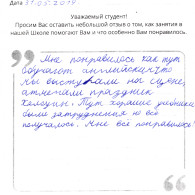 Дата 31.05.2019
Уважаемый студент!
Просим Вас оставить небольшой отзыв о том, как занятия в
нашей Школе помогают Вам и что особенно Вам понравилось.
Мне понравилось как тут
обучают английскому что
мы выступали на сцене,
отмечали праздник
Хелоуин. Тут хорошие учебники
были затруднения но всё
получалось. Мне всё понравилось!